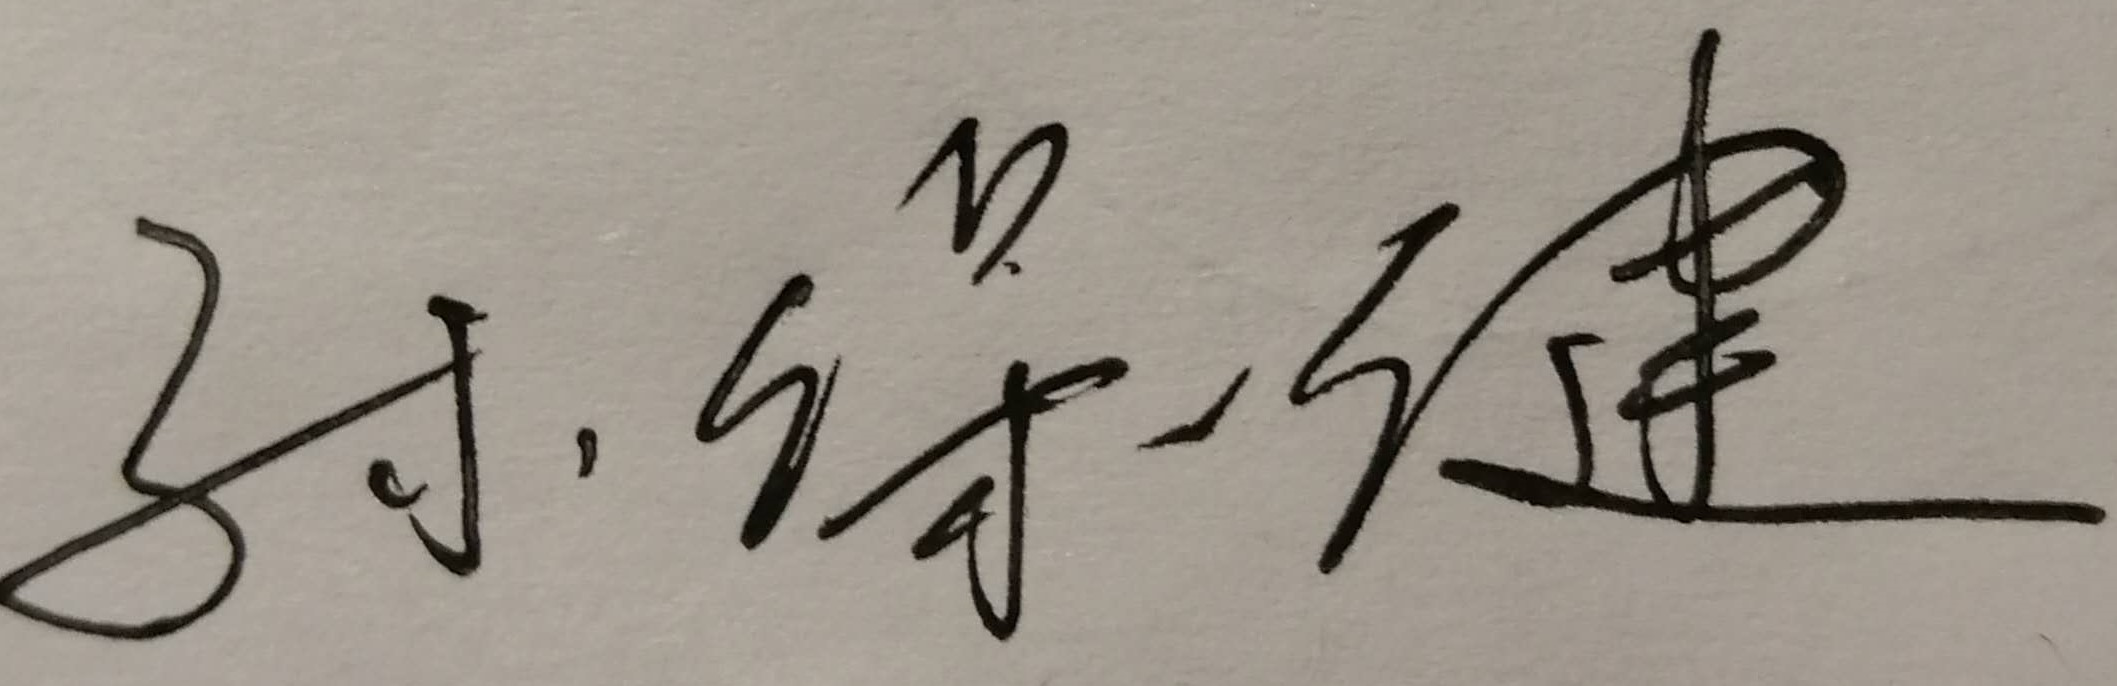 孙得健